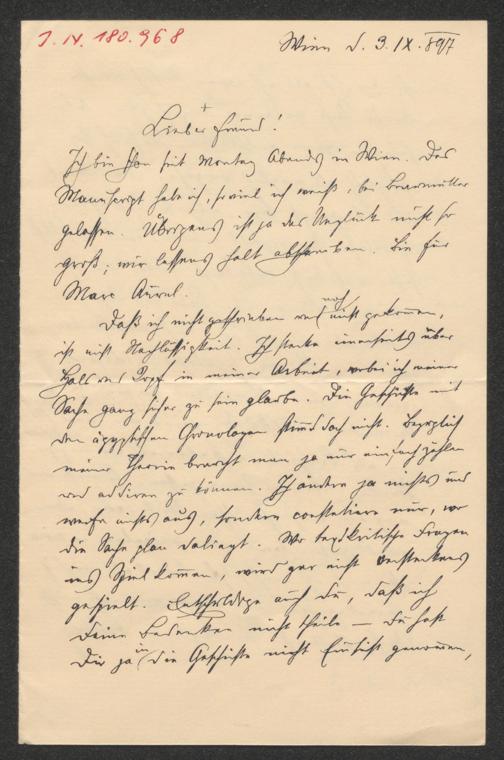 J. N. 180.968
Wien d. 3. IX. 897
Lieber Freund!
Ich bin schon seit Montag Abends in Wien. Das
Manuscript habe ich, soviel ich weiß, bei Braumüller
gelassen. Übrigens ist ja das Unglück nicht so
groß; wir lassens halt abschreiben. Bin für
Marc Aurel.
Daß ich nicht geschrieben und noch nicht gekommen,
ist nicht Nachlässigkeit. Ich stecke einerseits über
Hals und Kopf in meiner Arbeit, wobei ich meiner
Sache ganz sicher zu sein glaube. Die Geschichte mit
den ägyptischen Chronologen stimmt doch nicht. Bezüglich
meiner Theorie braucht man ja nur einfach zählen
und addiren zu können. Ich ändere ja nichts und
werfe nichts aus, sondern constatiere nur, wo
die Sache plan daliegt. Wo textkritische Fragen
ins Spiel kommen, wird gar nicht Verstecken
gespielt. Entschuldige auch du, daß ich
Deine Bedenken nicht theile — Du hast
Dir ja in die Geschichte nicht Einsicht genommen,